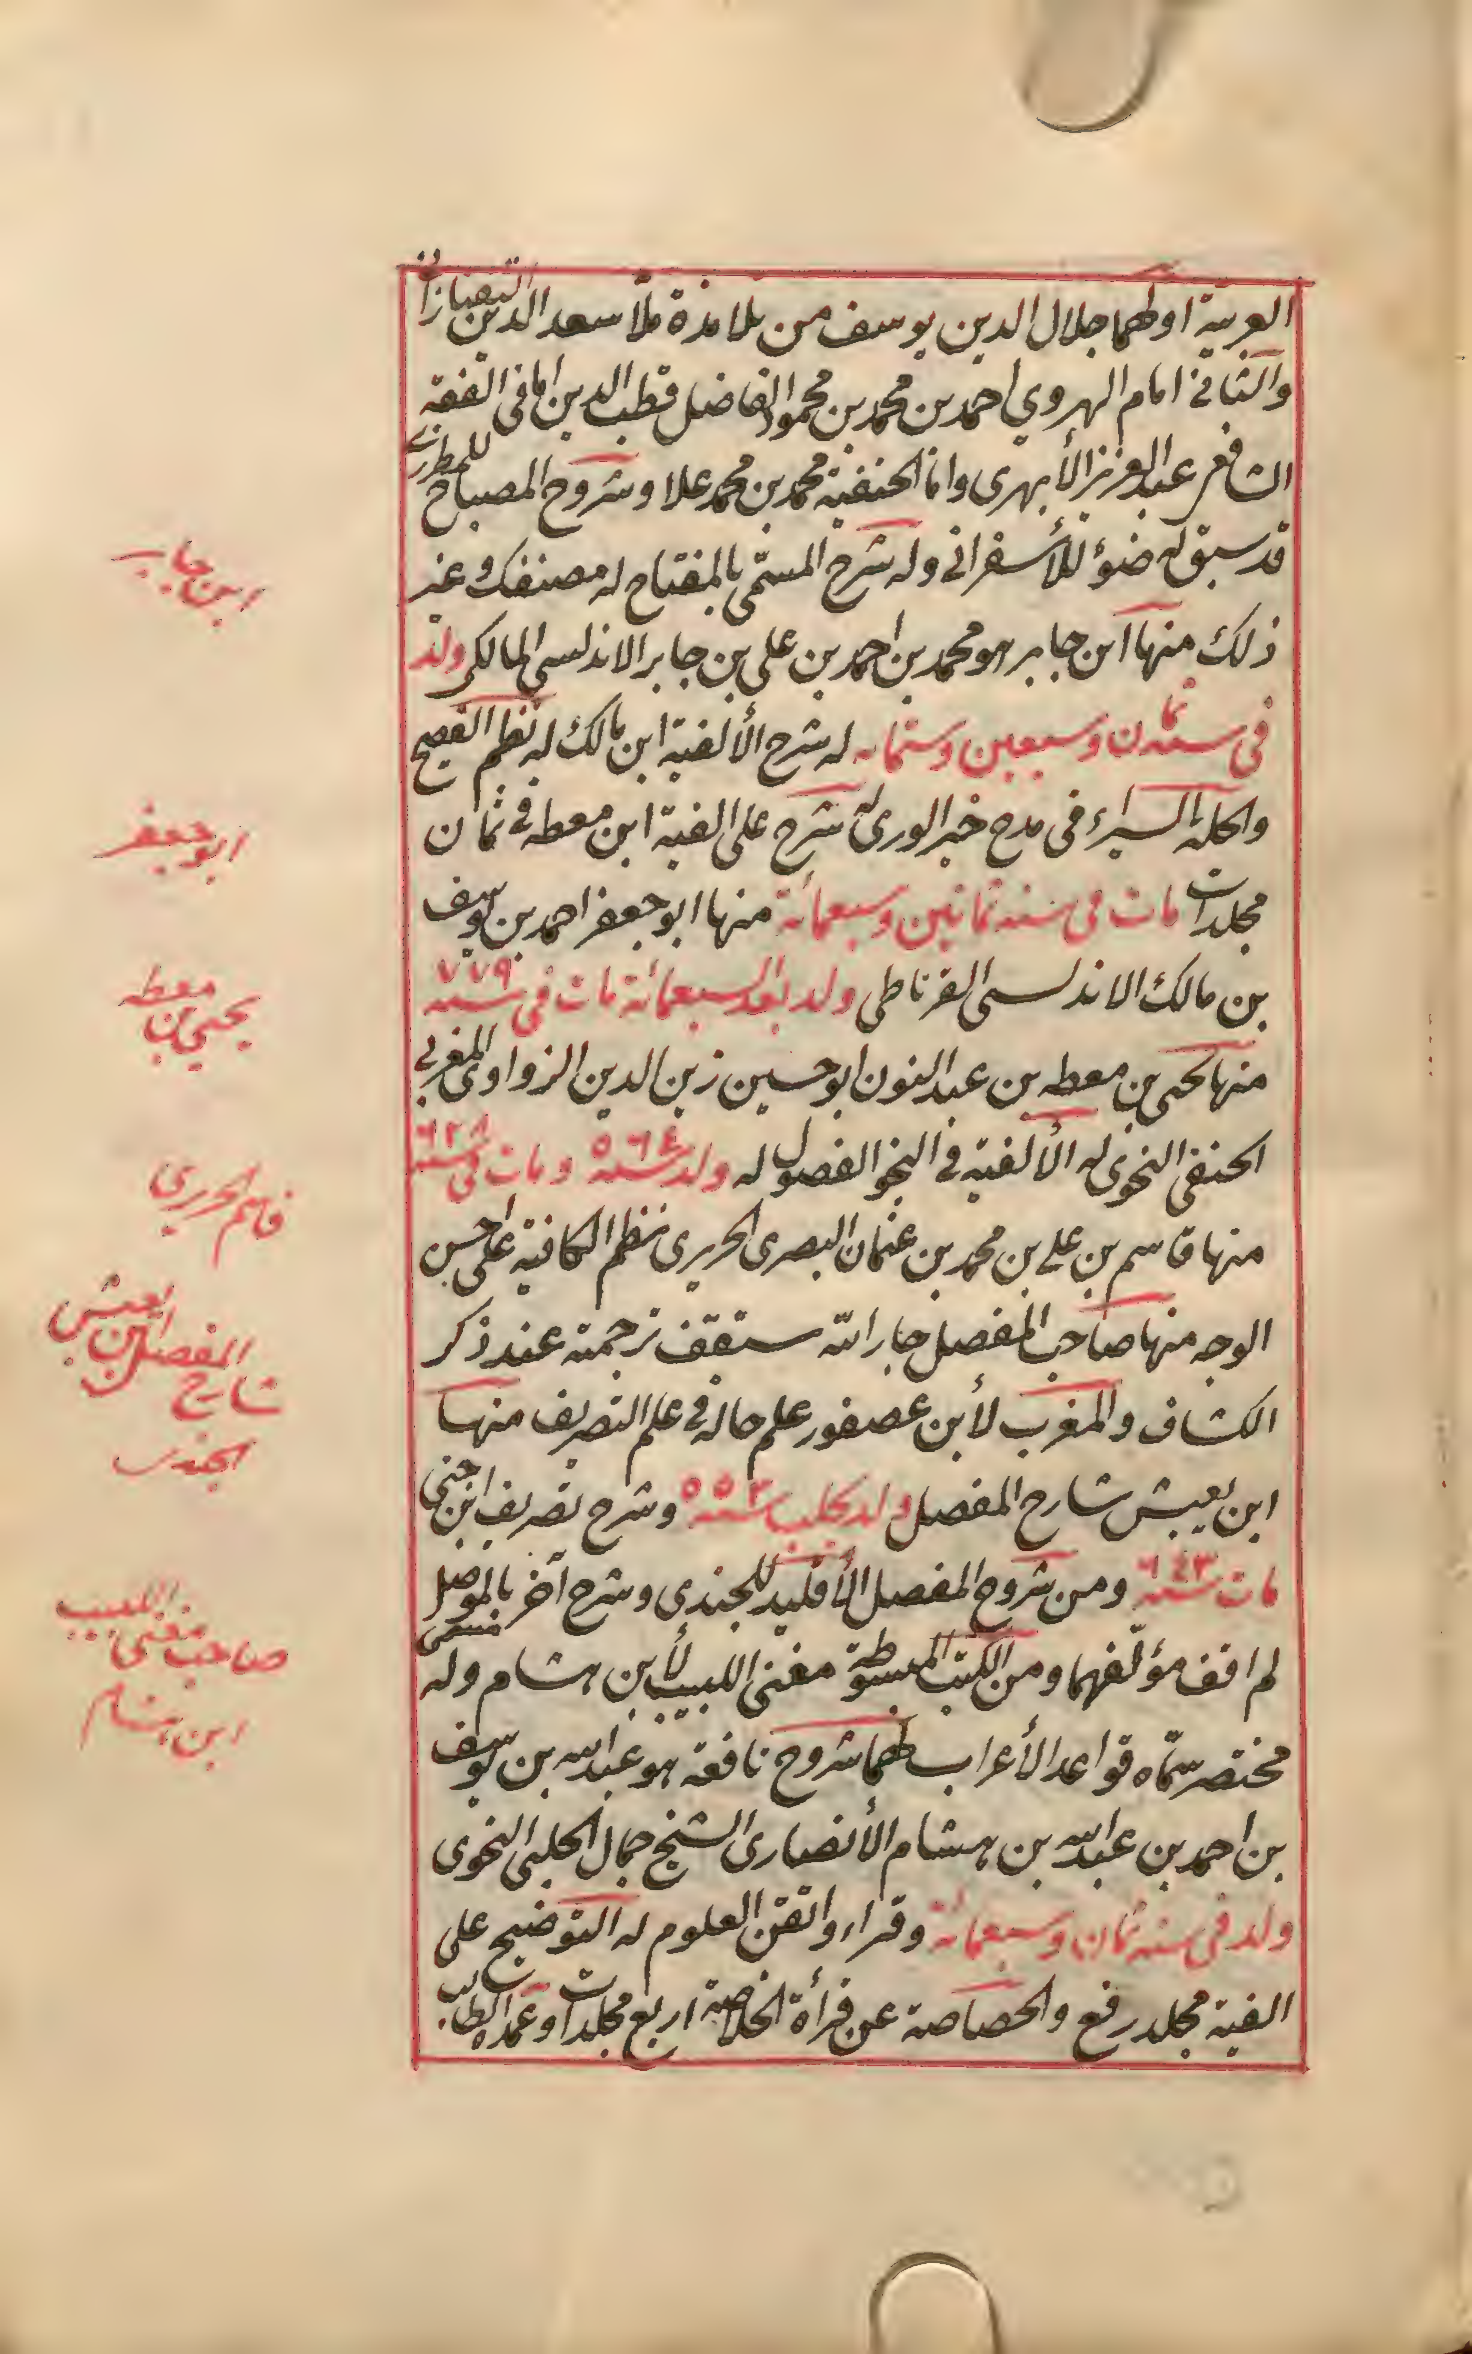 العربية اولهما جلال الدين يوسف من تلامذة ملا سعد الدين التفتازانى
والثانى امام الهروي احمد بن محمد بن محمود الفاضل قطب الدين اما فى الفقه
الشافعى عبد العزيز الأبهرى واما الحنفية محمد بن محمد علا وشروح المصباح للمطرزى
قد سبق له ضوؤ للأسفرانى وله شرح المسمّى بالمفتاح له مصنفك وغير
ذلك منها ابن جابر هو محمد بن احمد بن على بن جابر الاندلسى المالكى ولد
فى سنة ثمان وسبعين وستمائه له شرح الألفية ابن مالك له نظم الفصيح
والحلة السيراء فى مدح خير الورى له شرح على الفية ابن معطه فى ثمان
مجلدات مات فى سنه ثمانين وسبعمائة منها ابو جعفر احمد بن يوسف
بن مالك الاندلسى القرناطى ولد بعد السبعمائة مات فى سنه ٧٧٩
منها يحيى بن معطه بن عبد النون ابو حسين زين الدين الزواوى المغربى
الحنفى النحوى له الألفية فى النحو الفصول له ولد سنه ٥٦٤ ومات فى سنه ٦٢٨
منها قاسم بن على بن محمد بن عثمان البصرى الحريرى نظم الكافية على احسن
الوجه منها صاحب المفصل جار الله ستقف ترجمته عند ذكر
الكشاف والمغرب لأبن عصفور علم حاله فى علم التصريف منها
ابن يعيش شارح المفصل ولد بحلب سنه ٥٥٣ وشرح تصريف ابن جنى
مات سنه ٦٤٣ ومن شروح المفصل الأقليد للجندى وشرح آخر بالموصل مسمى
لم اقف مؤلفهما ومن الكتب المبسوطة مغنى اللبيب لأبن هشام وله
مختصر سمّاه قواعد الأعراب لهما شروح نافعة هو عبد الله بن يوسف
بن احمد بن عبد الله بن هشام الأنصارى الشيخ جمال الحلبى النحوى
ولد فى سنه ثمان وسبعمائة وقراء واتقن العلوم له التوضيح على
الفية مجلد رفع والخصاصة عن قرأة الخلاصة اربع مجلدات وعمدة الطالب
ابن جابر
ابو جعفر
يحيى بن معطه
قاسم الحريرى
ابن يعيش
شارح المفصل
الجندى
صاحب مغنى اللبيب
ابن هشام